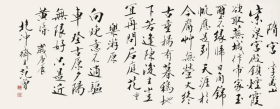 隋宮
紫泉宮殿鎖煙霞
欲取蕪城作帝家玉
璽不緣歸日角錦
帆應是到天涯於
今腐草無螢火終
古垂楊有暮鴉地
下若逢陳後主豈
宜重問後庭花
樂游原
向晚意不適驅
車登古原夕陽
無限好只是近
黃昏